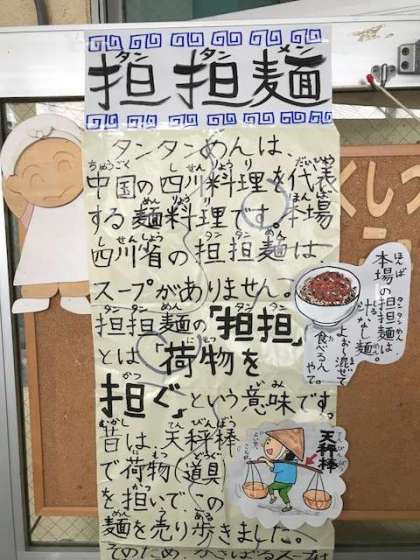 タン タン メン
担担麺
タンタンめんは、
中国の四川料理を代表
する麺料理です。本場
四川省の担担麺は
スープがありません。
担担麺の「担担」
とは「荷物を
担ぐ」という意味です。
昔は、天秤棒
で荷物(道具)
を担いで、この
麺を売り歩きました。
そのため、かさばるスー
くしつ
本場の担担麺は
汁なし麺。
よお〜混ぜて
食べるん
やて。
天秤棒